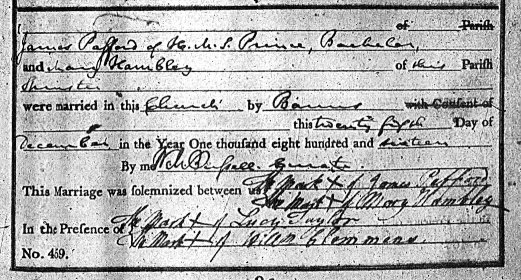 of Parish
James Pafford of H.M.S. Prince, Bachelor,
and Mary Hambley of this Parish
Spinster
were married in this Church by Banns with Consent of
this twenty fifth Day of
December in the Year One thousand eight hundred and sixteen
By me Russell Curate
This Marriage was solemnized between us The Mark X of James Pafford
The Mark X of Mary Hambley
In the Presence of The Mark X of Lucy Taylor
The Mark X of William Clemmens
No. 459.